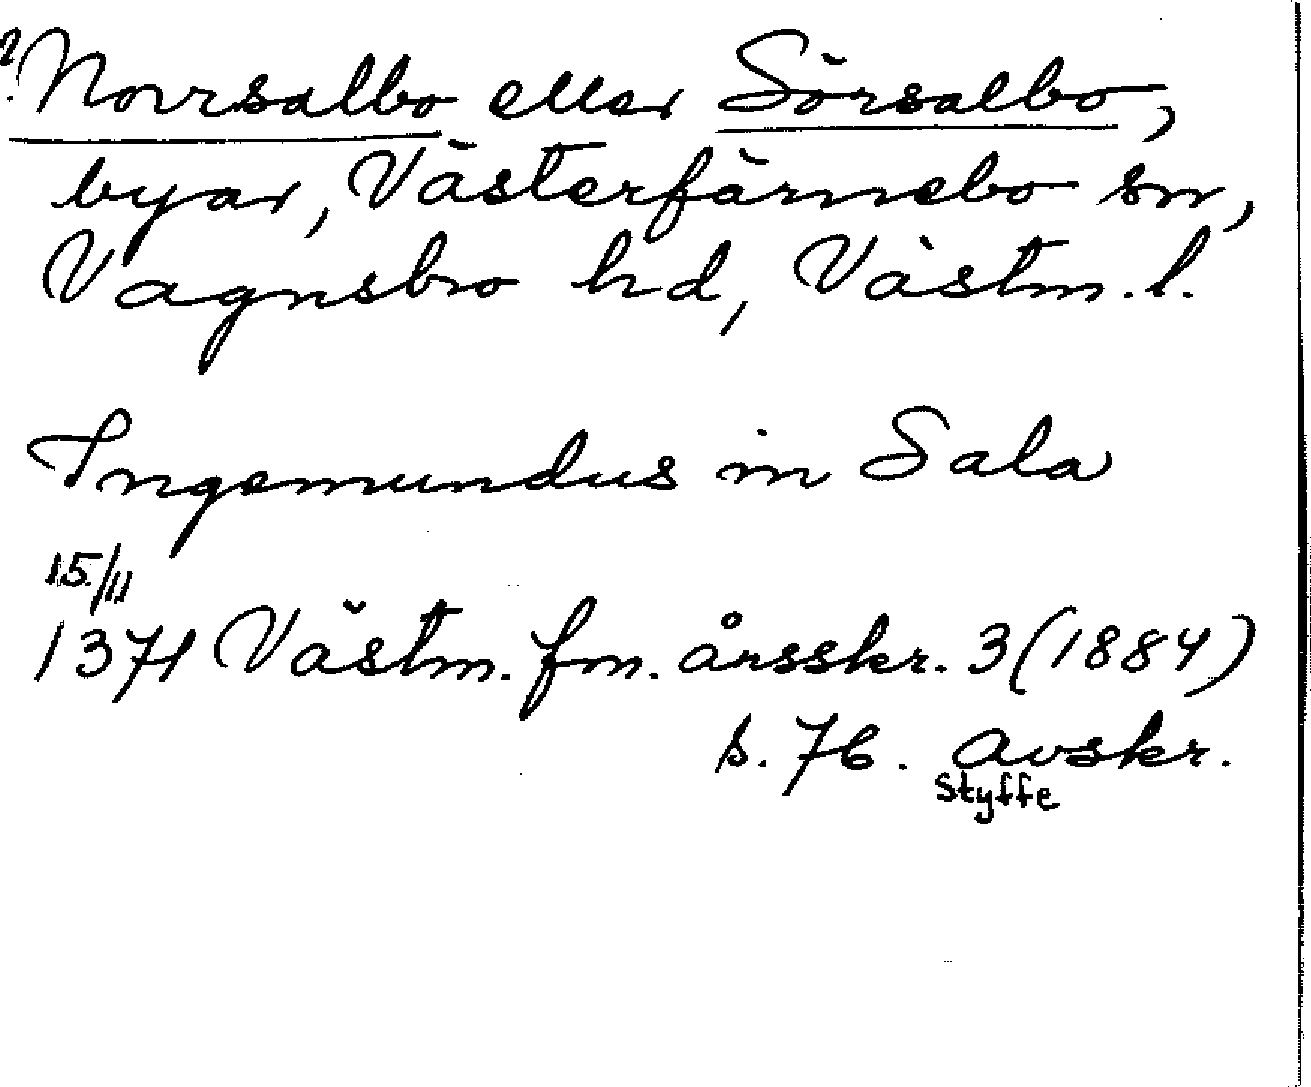 ? Norrsalbo eller Sörsalbo,
byar, Västerfärnebo sn,
Vagnsbro hd, Västm. l.
Ingemundus in Sala
15/11
1371 Västm. fm. årsskr. 3 (1884)
s. 76. Avskr.
Styffe